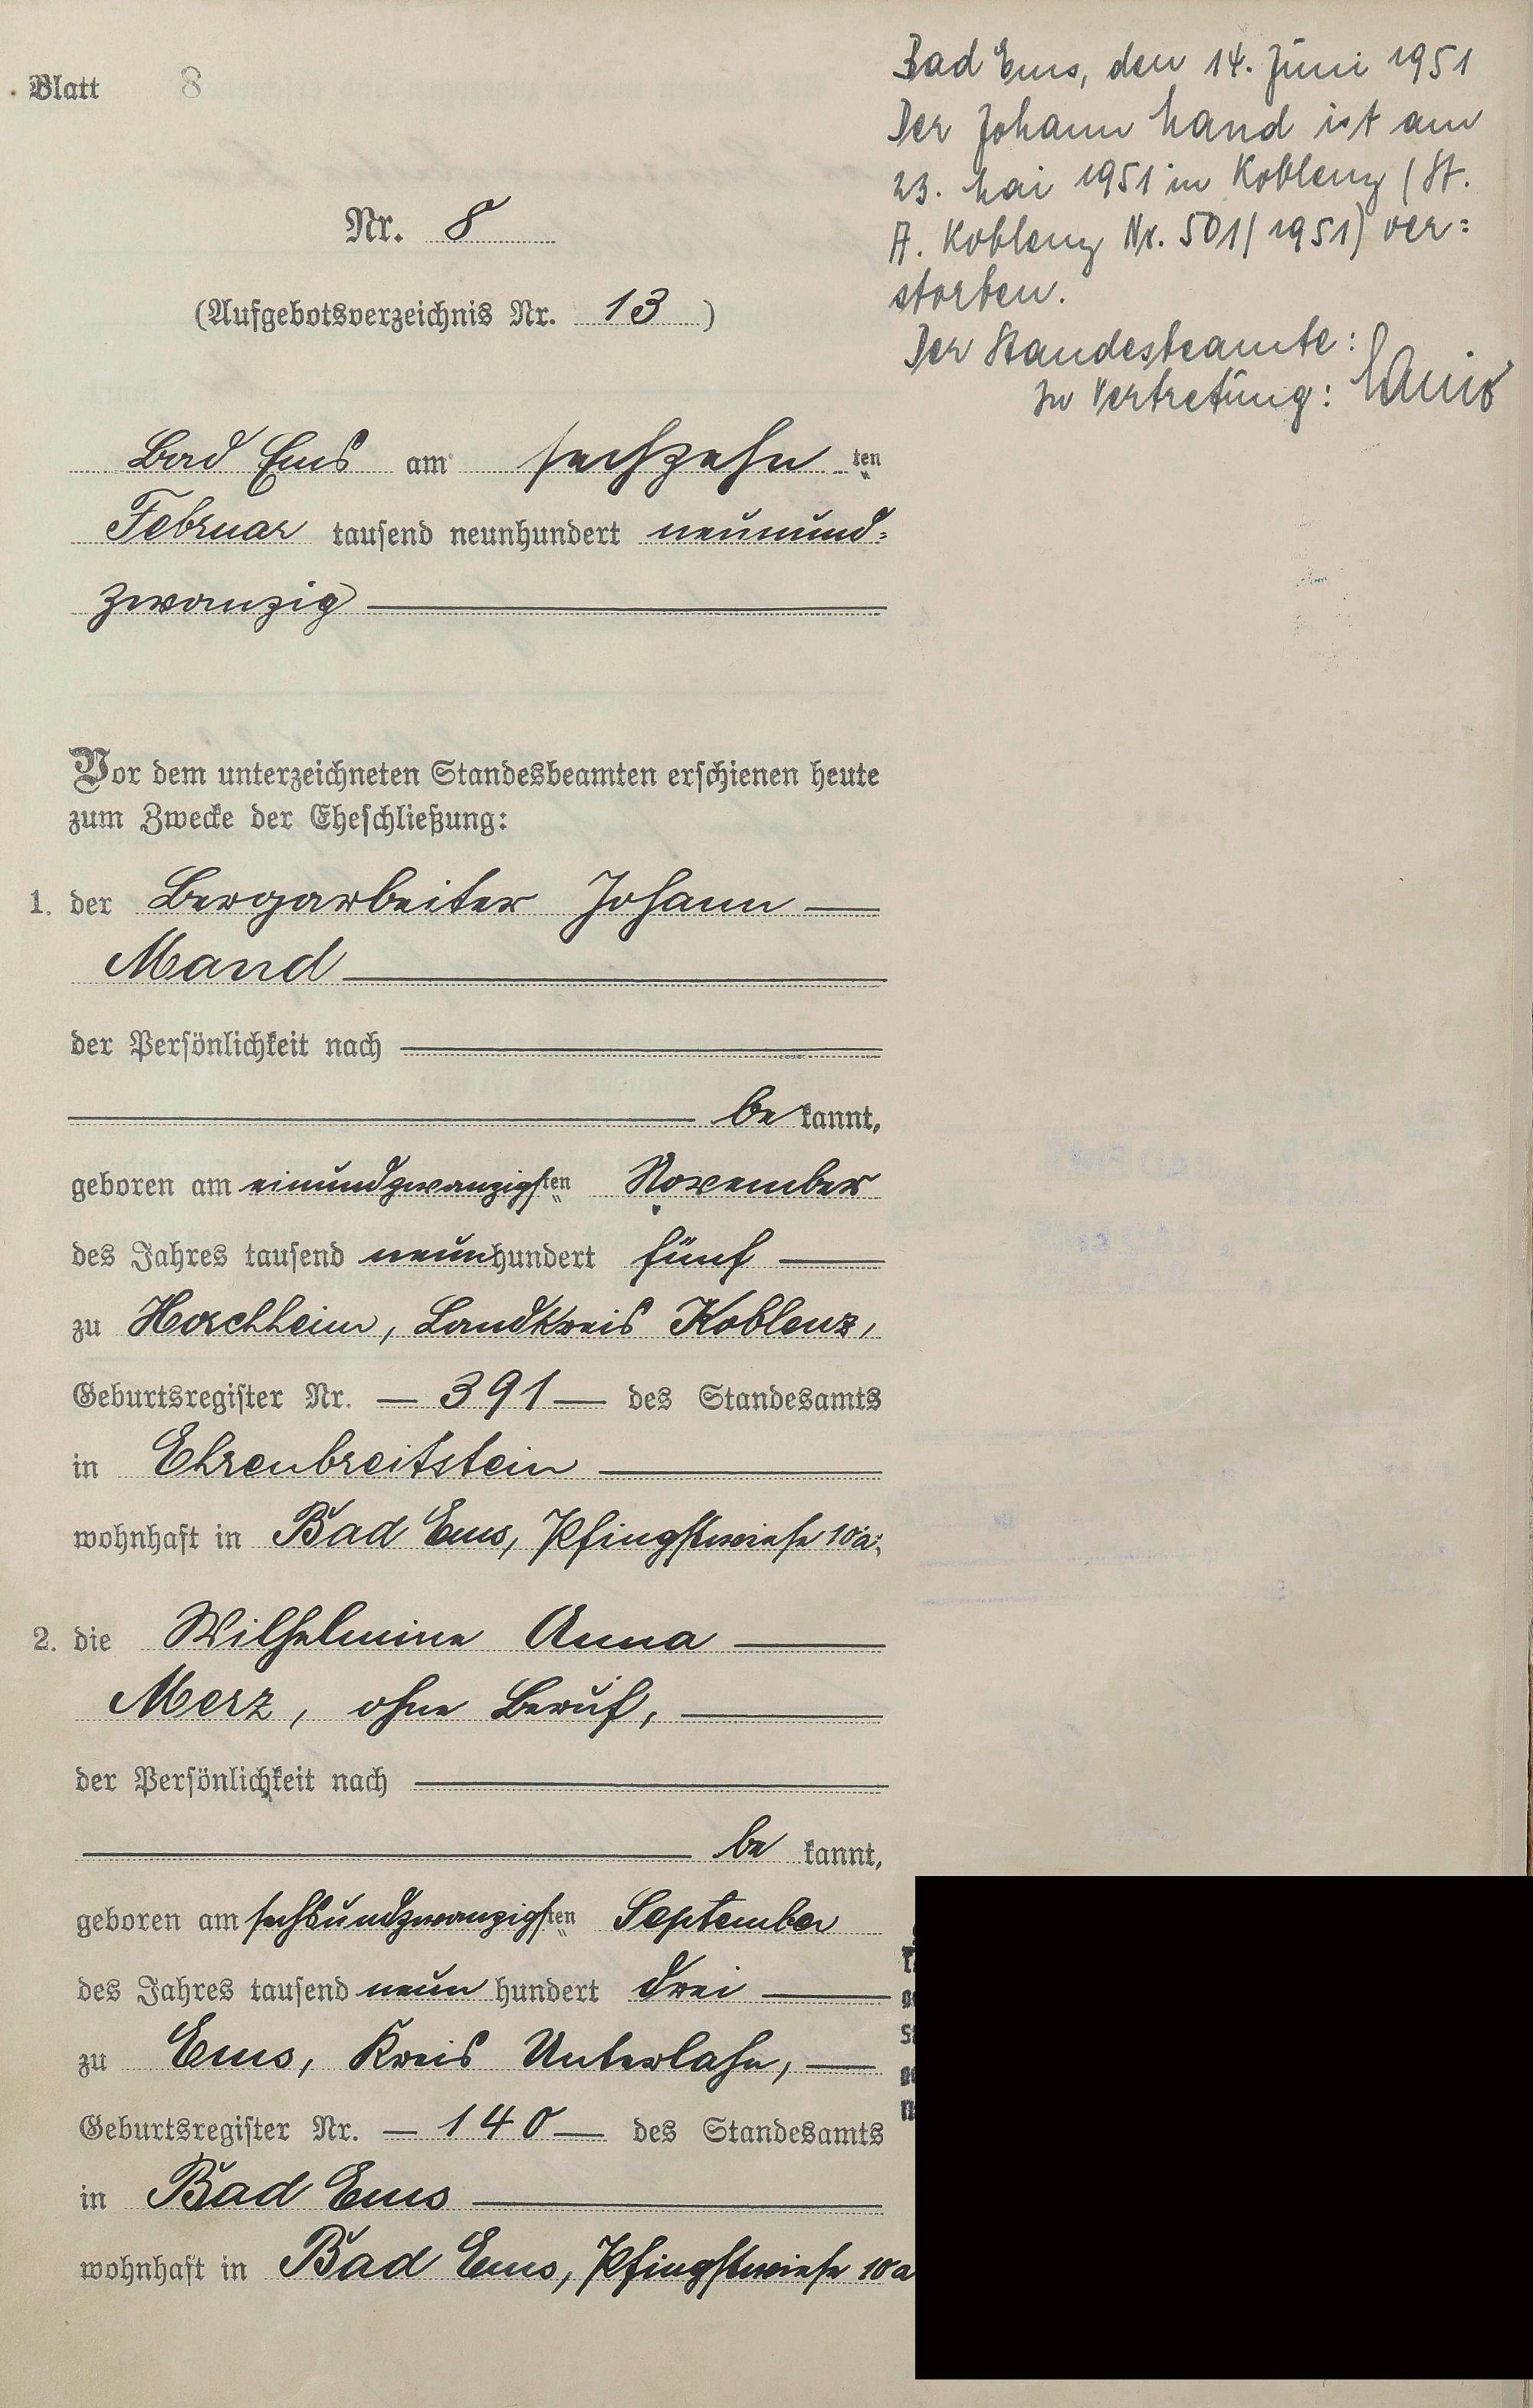 Blatt 8
Nr. 8
(Aufgebotsverzeichnis Nr. 13)
Bad Ems, den 14. Juni 1951
Der Johann Mand ist am
23. Mai 1951 in Koblenz (St.
A. Koblenz Nr. 501/1951) ver=
storben.
Der Standesbeamte:
In Vertretung:
Bad Ems am sechzehn ten
Februar tausend neunhundert neunund=
zwanzig
Vor dem unterzeichneten Standesbeamten erschienen heute
zum Zwecke der Eheschließung:
1. der Bergarbeiter Johann
Mand
der Persönlichkeit nach
be kannt,
geboren am einundzwanzigsten November
des Jahres tausend neunhundert fünf
zu Horchheim, Landkreis Koblenz,
Geburtsregister Nr. 391 des Standesamts
in Ehrenbreitstein
wohnhaft in Bad Ems, Pfingstwiese 10a;
2. die Wilhelmine Anna
Merz, ohne Beruf,
der Persönlichkeit nach
be kannt,
geboren am sechsundzwanzigsten September
des Jahres tausend neun hundert drei
zu Ems, Kreis Unterlahn,
Geburtsregister Nr. 140 des Standesamts
in Bad Ems
wohnhaft in Bad Ems, Pfingstwiese 10a